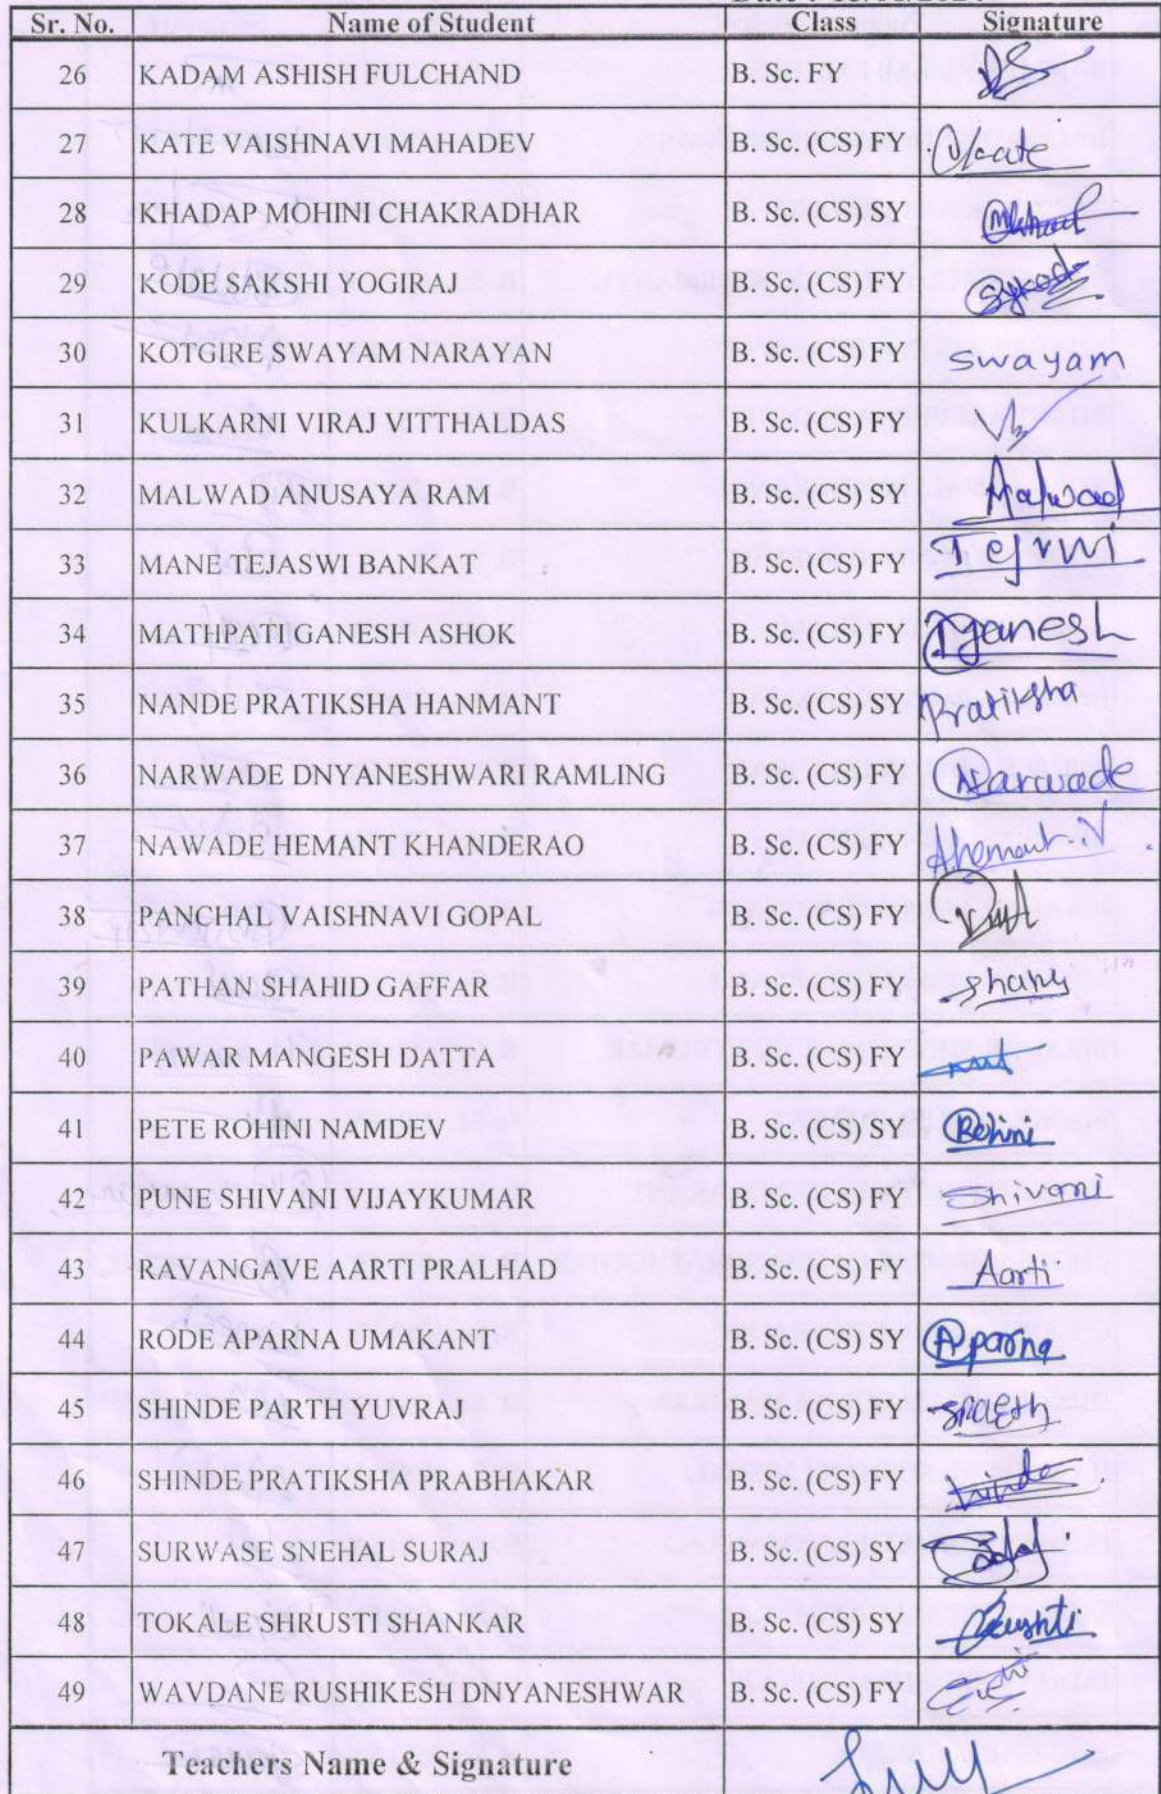 Sr. No. Name of Student Class Signature
26 KADAM ASHISH FULCHAND B. Sc. FY
27 KATE VAISHNAVI MAHADEV B. Sc. (CS) FY
28 KHADAP MOHINI CHAKRADHAR B. Sc. (CS) SY
29 KODE SAKSHI YOGIRAJ B. Sc. (CS) FY
30 KOTGIRE SWAYAM NARAYAN B. Sc. (CS) FY swayam
31 KULKARNI VIRAJ VITTHALDAS B. Sc. (CS) FY
32 MALWAD ANUSAYA RAM B. Sc. (CS) SY Malwad
33 MANE TEJASWI BANKAT B. Sc. (CS) FY
34 MATHPATI GANESH ASHOK B. Sc. (CS) FY ganesh
35 NANDE PRATIKSHA HANMANT B. Sc. (CS) SY Pratiksha
36 NARWADE DNYANESHWARI RAMLING B. Sc. (CS) FY Narwade
37 NAWADE HEMANT KHANDERAO B. Sc. (CS) FY
38 PANCHAL VAISHNAVI GOPAL B. Sc. (CS) FY
39 PATHAN SHAHID GAFFAR B. Sc. (CS) FY
40 PAWAR MANGESH DATTA B. Sc. (CS) FY
41 PETE ROHINI NAMDEV B. Sc. (CS) SY Rohini
42 PUNE SHIVANI VIJAYKUMAR B. Sc. (CS) FY Shivani
43 RAVANGAVE AARTI PRALHAD B. Sc. (CS) FY Aarti
44 RODE APARNA UMAKANT B. Sc. (CS) SY Aparna
45 SHINDE PARTH YUVRAJ B. Sc. (CS) FY
46 SHINDE PRATIKSHA PRABHAKAR B. Sc. (CS) FY
47 SURWASE SNEHAL SURAJ B. Sc. (CS) SY
48 TOKALE SHRUSTI SHANKAR B. Sc. (CS) SY
49 WAVDANE RUSHIKESH DNYANESHWAR B. Sc. (CS) FY
Teachers Name & Signature